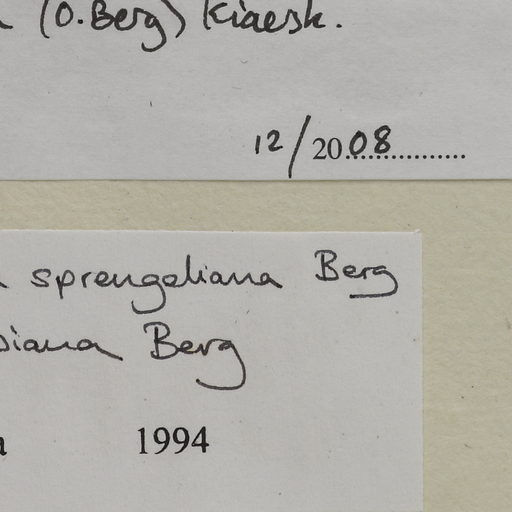 (O.Berg) Kiaersk.
12/2008
sprengeliana Berg
iana Berg
1994